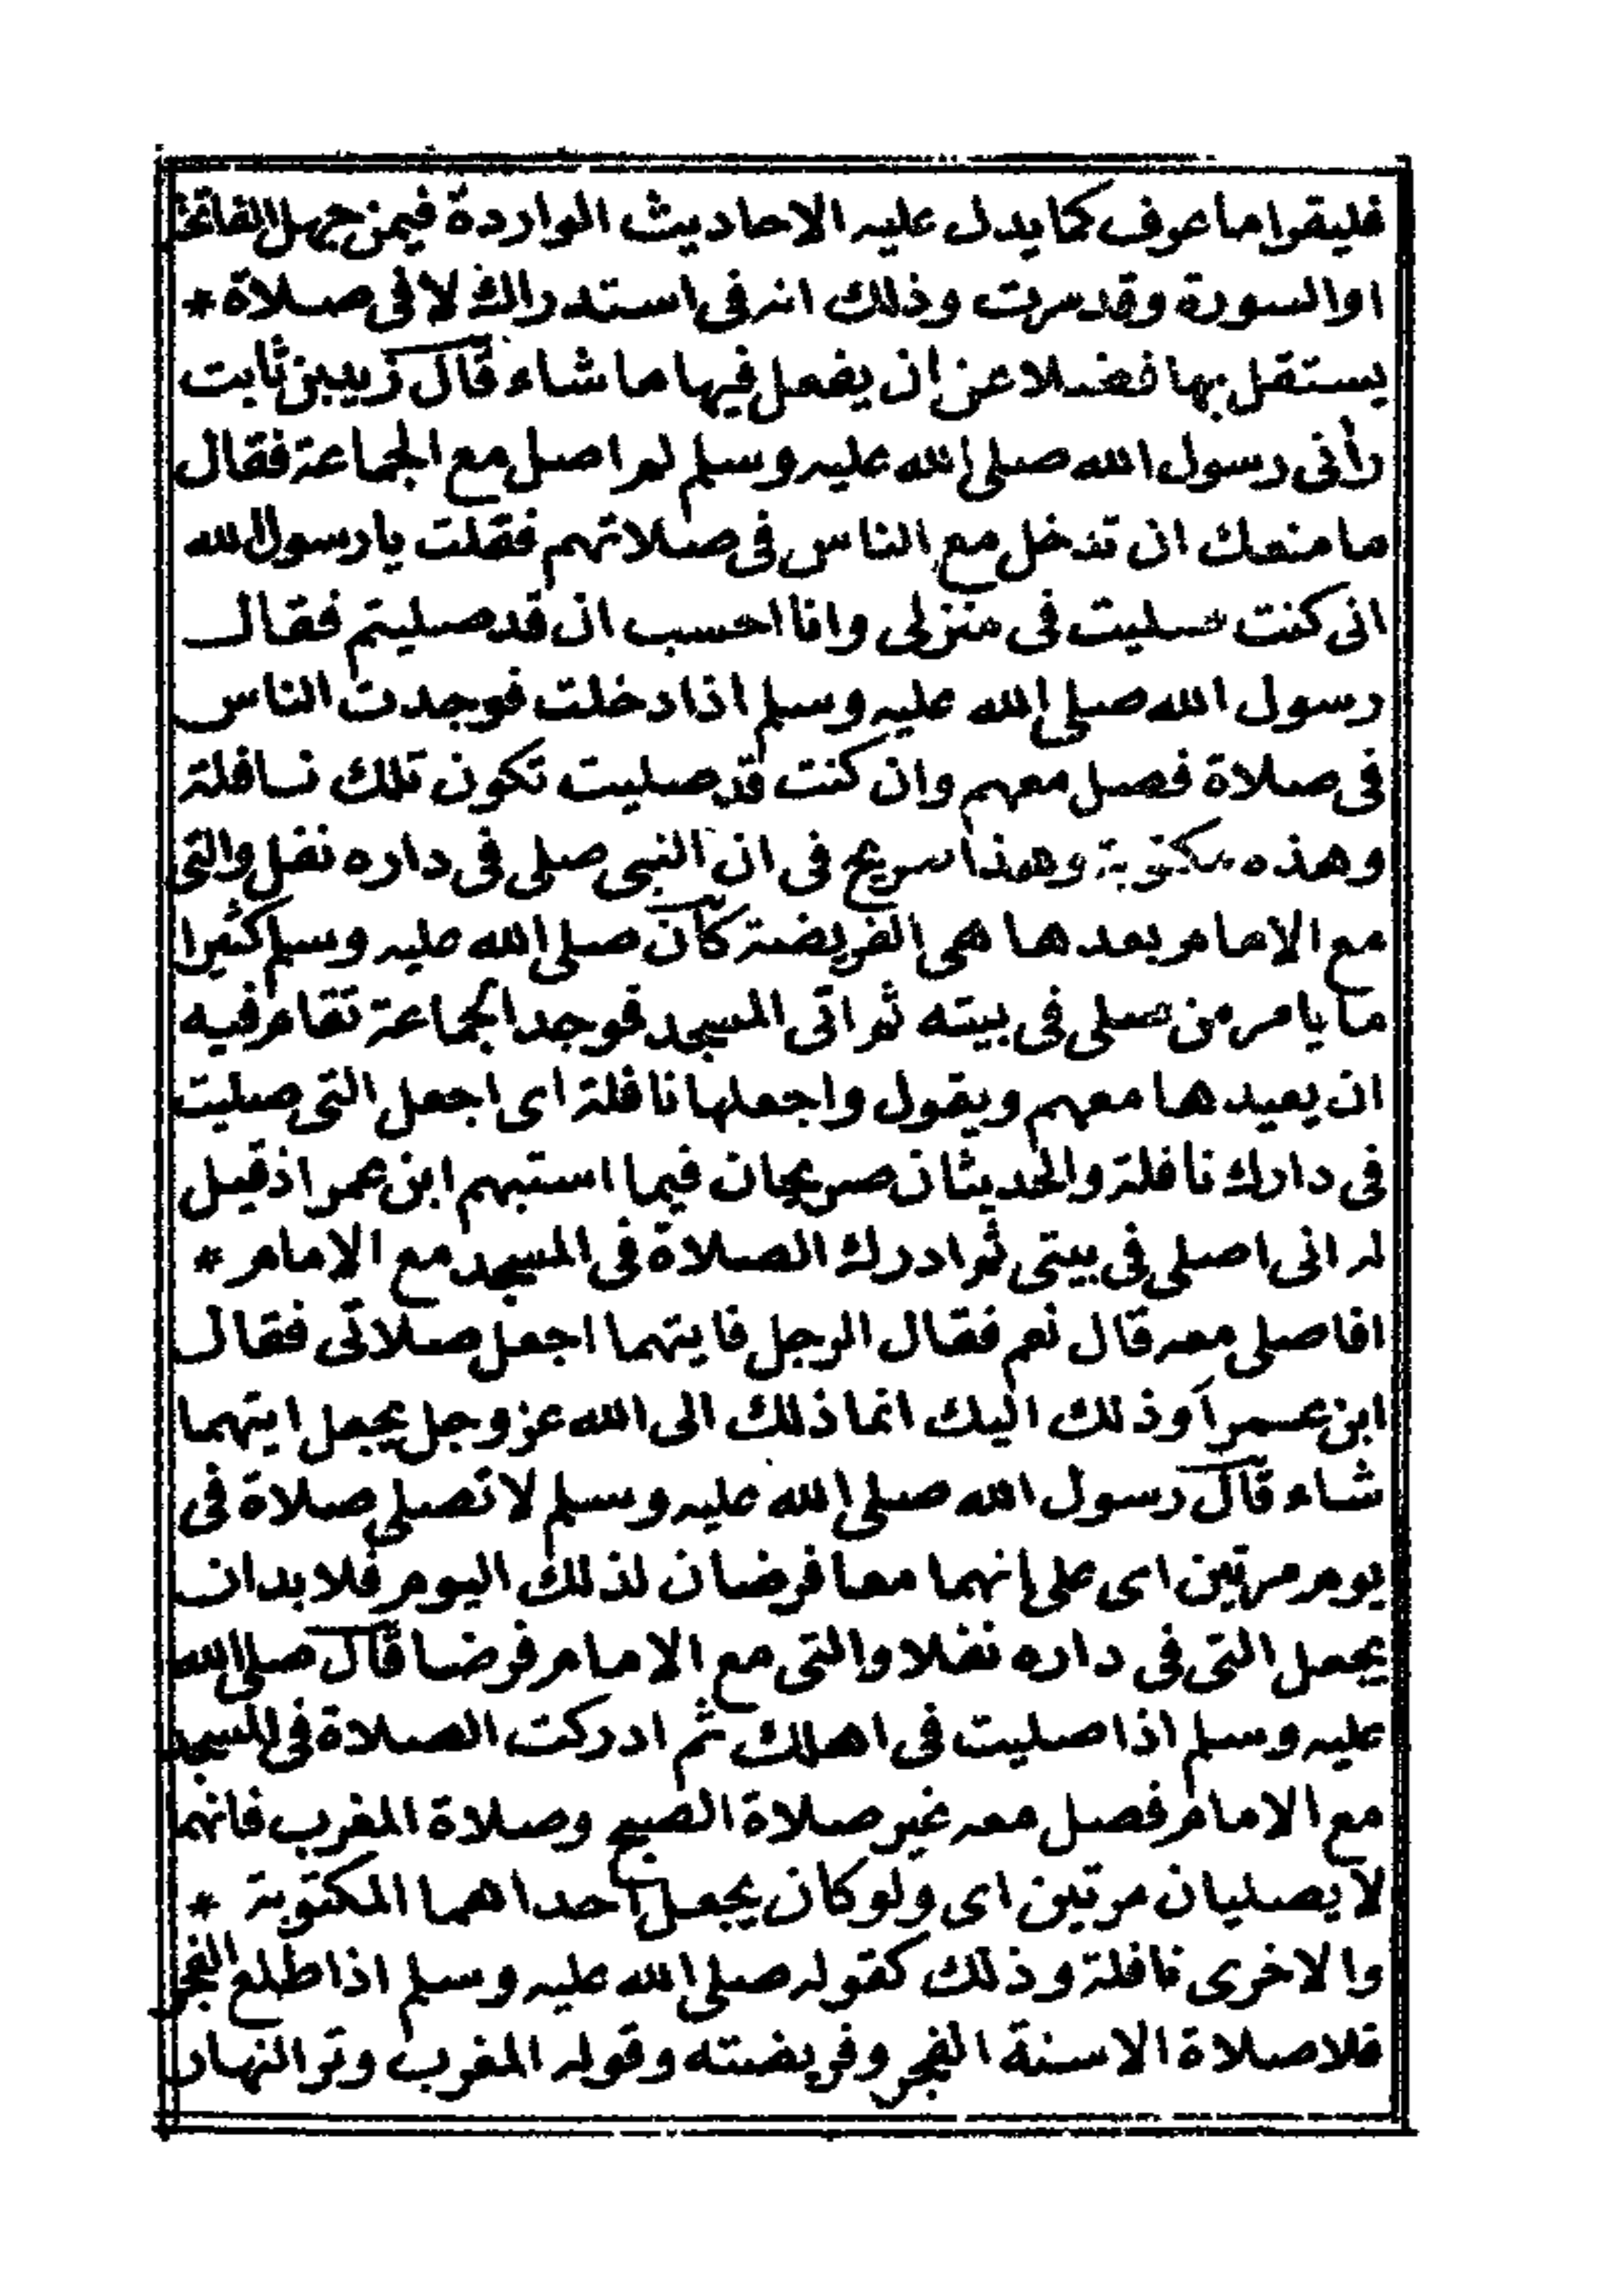 فليقرا ما عرف كما يدل عليه الاحاديث الواردة فيمن جهل الفاتحة
او السورة وقد مرت وذلك انه فى استدراك لا فى صلاة *
يستقل بها فضلا عن ان يفعل فيها ما شاء قال زيد بن ثابت
رأنى رسول الله صلى الله عليه وسلم لم اصل مع الجماعة فقال
ما منعك ان تدخل مع الناس فى صلاتهم فقلت يا رسول الله
انى كنت صليت فى منزلى وانا احسب ان قد صليتم فقال
رسول الله صلى الله عليه وسلم اذا دخلت فوجدت الناس
فى صلاة فصل معهم وان كنت قد صليت تكون تلك نافلة
وهذه مكتوبة وهذا صريح فى ان التى صلى فى داره نفل والتى
مع الامام بعدها هى الفريضة كان صلى الله عليه وسلم كثيرا
ما يامر من صلى فى بيته ثم اتى المسجد فوجد الجماعة تقام فيه
ان يعيدها معهم ويقول واجعلها نافلة اى اجعل التى صليت
فى دارك نافلة والحديثان صريحان فيما استبهم ابن عمر اذ قيل
له انى اصلى فى بيتى ثم ادرك الصلاة فى المسجد مع الامام *
افاصلى معه قال نعم فقال الرجل فايتهما اجعل صلاتى فقال
ابن عمر أوذلك اليك انما ذلك الى الله عز وجل يجعل ايتهما
شاء قال رسول الله صلى الله عليه وسلم لا تصلى صلاة فى
يوم مرتين اى على انهما معا فرضان لذلك اليوم فلا بد ان
يجعل التى فى داره نفلا والتى مع الامام فرضا قال صلى الله
عليه وسلم اذا صليت فى اهلك ثم ادركت الصلاة فى المسجد
مع الامام فصل معه غير صلاة الصبح وصلاة المغرب فانهما
لا يصليان مرتين اى ولو كان يجعل احداهما المكتوبة *
والاخرى نافلة وذلك كقوله صلى الله عليه وسلم اذا طلع الفجر
فلا صلاة الا سنة الفجر وفريضته وقوله المغرب وتر النهار